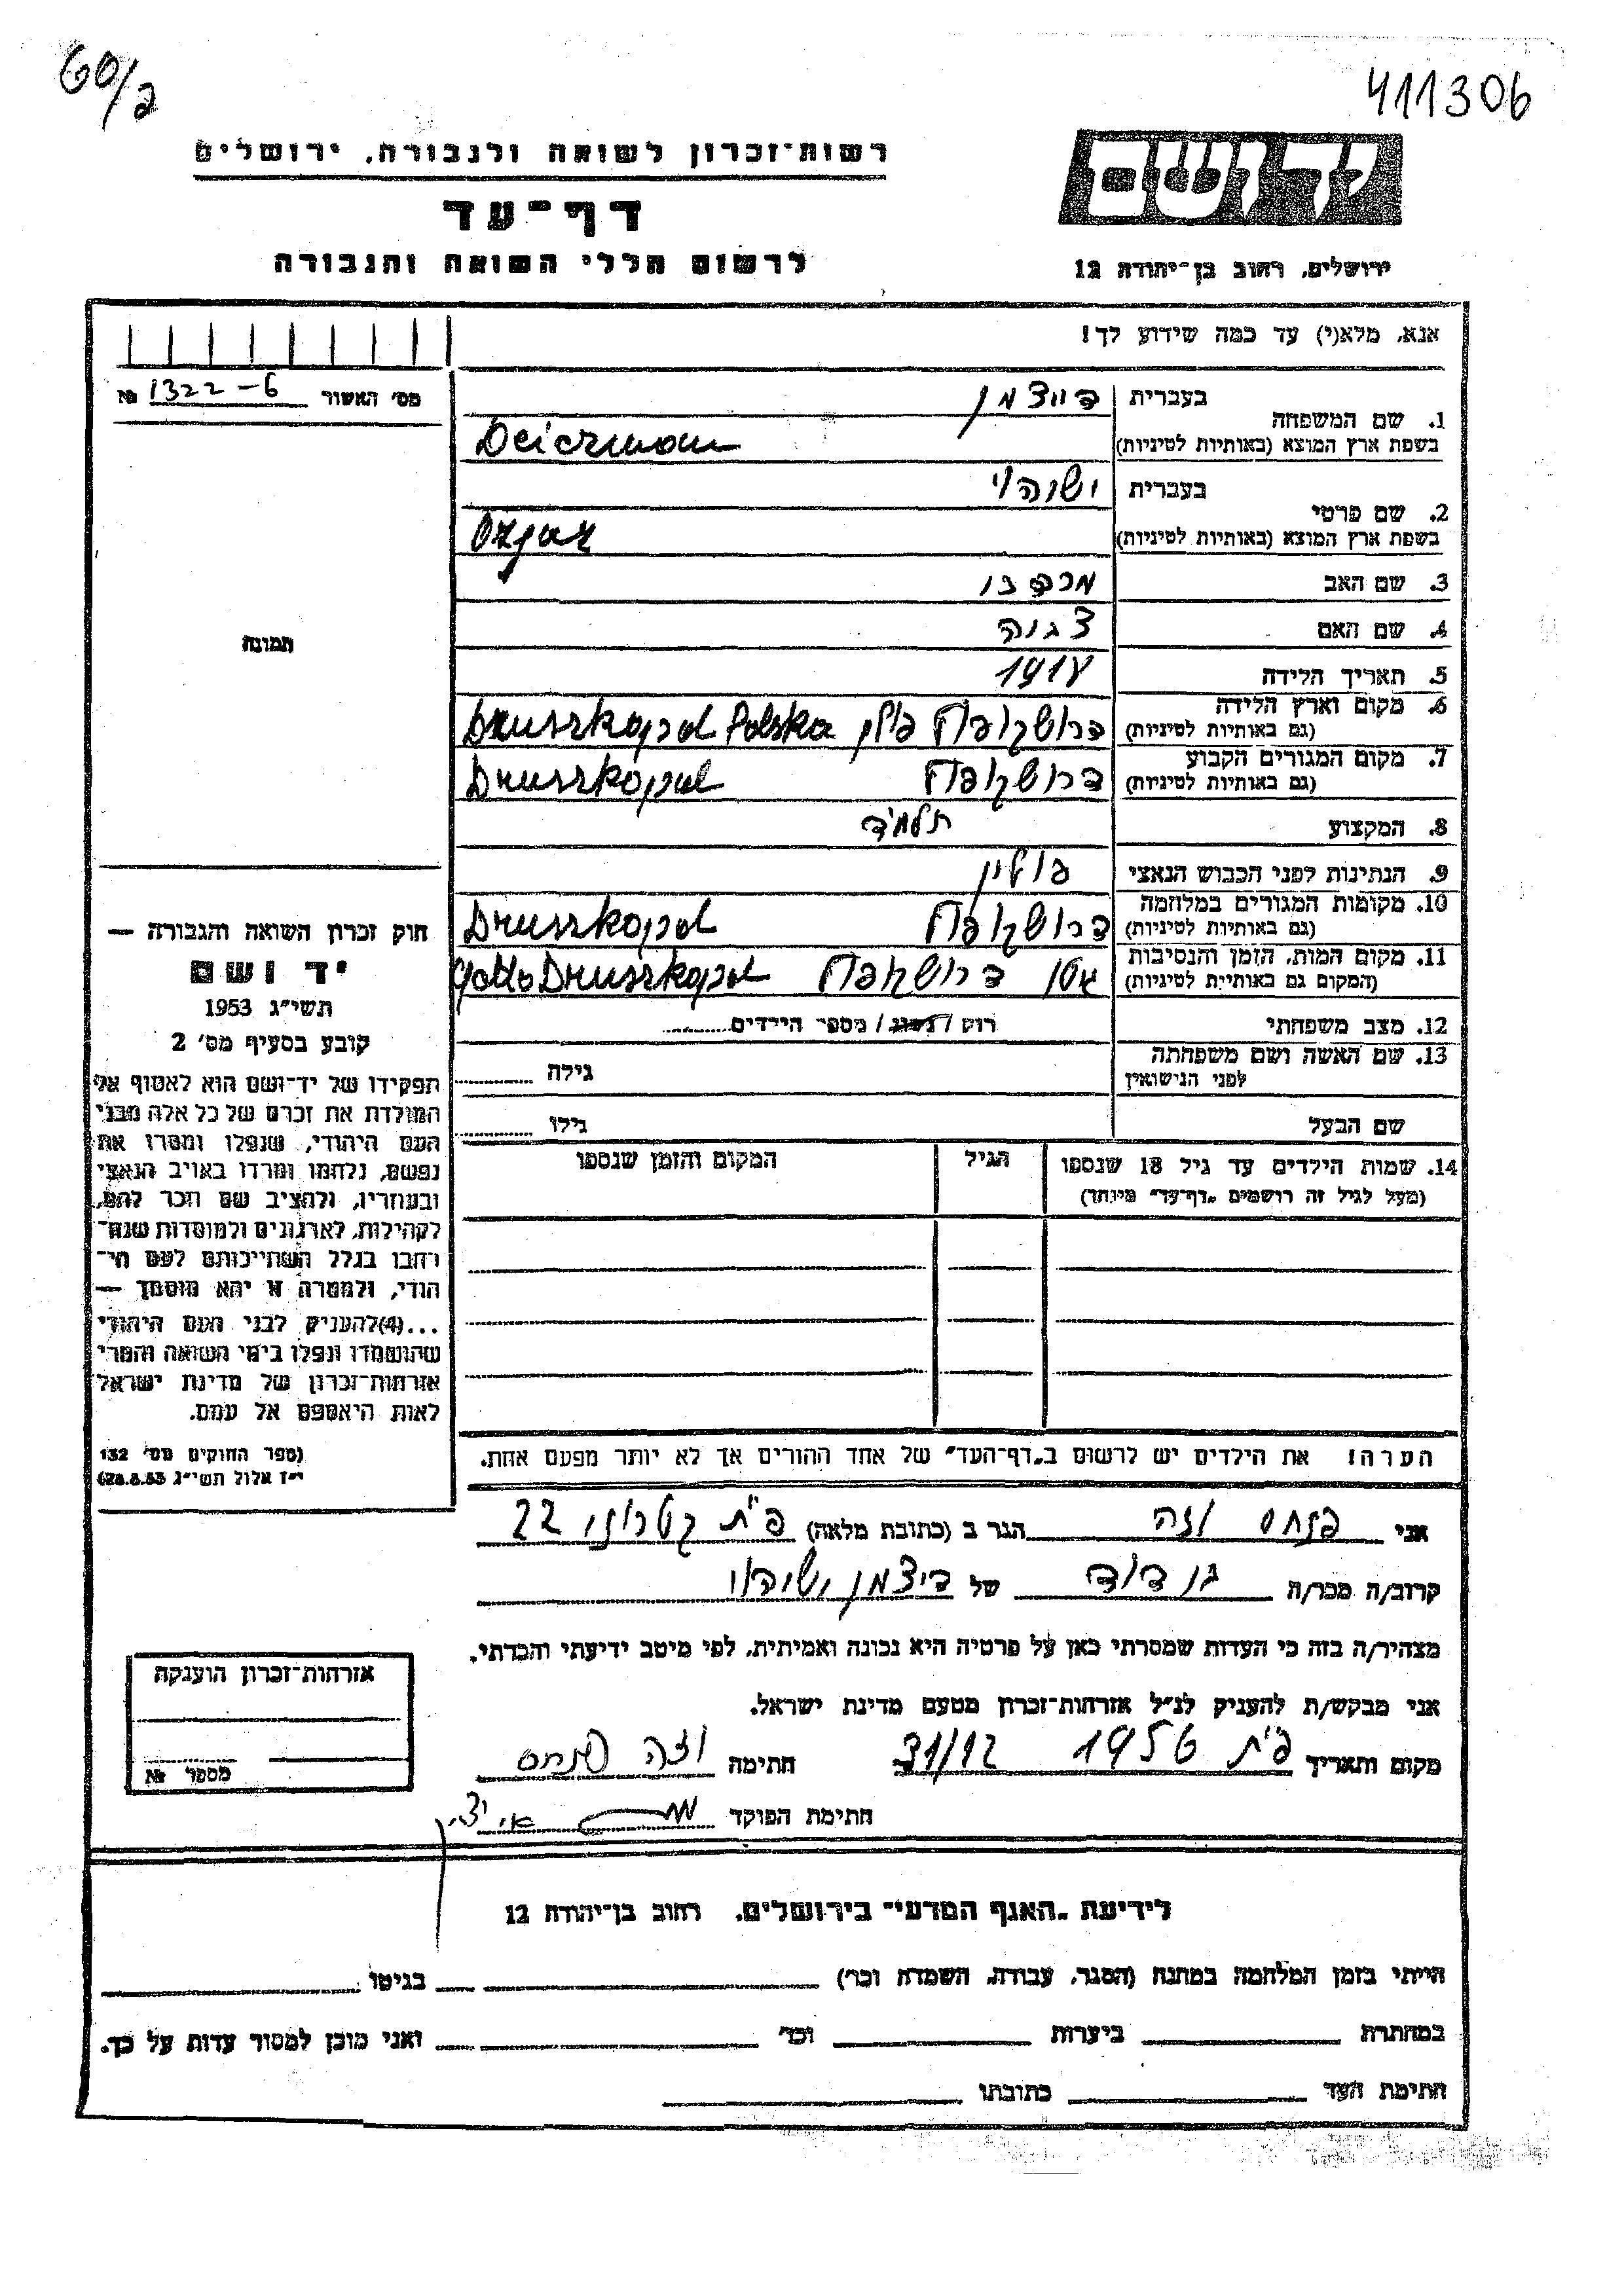 60/2
411306
רשות-זכרון לשואה ולגבורה, ירושלים
דף-עד
לרשום חללי השואה והגבורה
יד ושם
ירושלים, רחוב בן-יהודה 12
אנא, מלא(י) עד כמה שידוע לך!
מס' האשור № 1322-6
1. שם המשפחה
בעברית
בשפת ארץ המוצא (באותיות לטיניות) Deiczman
2. שם פרטי
בעברית ישעהו
בשפת ארץ המוצא (באותיות לטיניות)
3. שם האב מרדכי
4. שם האם
5. תאריך הלידה 1917
6. מקום וארץ הלידה (גם באותיות לטיניות) דרושקופול פולין Druszkopol Polska
7. מקום המגורים הקבוע (גם באותיות לטיניות) דרושקופול Druszkopol
8. המקצוע תלמיד
9. הנתינות לפני הכבוש הנאצי פולין
10. מקומות המגורים במלחמה (גם באותיות לטיניות) דרושקופול Druszkopol
11. מקום המות, הזמן והנסיבות (המקום גם באותיות לטיניות) גטו דרושקופול Getto Druszkopol
12. מצב משפחתי רווק / נשוי / מספר הילדים
13. שם האשה ושם משפחתה לפני הנישואין גילה
שם הבעל גילו
14. שמות הילדים עד גיל 18 שנספו
(מעל לגיל זה רושמים „דף-עד" מיוחד)
הגיל
המקום והזמן שנספו
תמונה
חוק זכרון השואה והגבורה —
יד ושם
תשי"ג 1953
קובע בסעיף מס' 2
תפקידו של יד-ושם הוא לאסוף אל
המולדת את זכרם של כל אלה מבני
העם היהודי, שנפלו ומסרו את
נפשם, נלחמו ומרדו באויב הנאצי
ובעוזריו, ולהציב שם וזכר להם,
לקהילות, לארגונים ולמוסדות שנח־
רבו בגלל השתייכותם לעם הי־
הודי, ולמטרה זו יהא מוסמך —
...(4)להעניק לבני העם היהודי
שהושמדו ונפלו בימי השואה והמרי
אזרחות-זכרון של מדינת ישראל
לאות היאספם אל עמם.
(ספר החוקים מס' 132
י"ז אלול תשי"ג 28.8.53)
הערה! את הילדים יש לרשום ב„דף-העד" של אחד ההורים אך לא יותר מפעם אחת.
אני פנחס וזה הגר ב (כתובת מלאה) פ"ת 22
קרוב/ה מכר/ה בן דוד של דיצמן ישעיהו
מצהיר/ה בזה כי העדות שמסרתי כאן על פרטיה היא נכונה ואמיתית, לפי מיטב ידיעתי והכרתי.
אני מבקש/ת להעניק לנ"ל אזרחות-זכרון מטעם מדינת ישראל.
מקום ותאריך פ"ת 1956 31/12 חתימה וזה פנחס
חתימת הפוקד
אזרחות-זכרון הוענקה
מספר №
לידיעת „האגף המדעי" בירושלים, רחוב בן-יהודה 12
הייתי בזמן המלחמה במחנה (הסגר, עבודה, השמדה וכו') בגיטו
במחתרת ביערות וכו' ואני מוכן למסור עדות על כך.
חתימת העד כתובתו